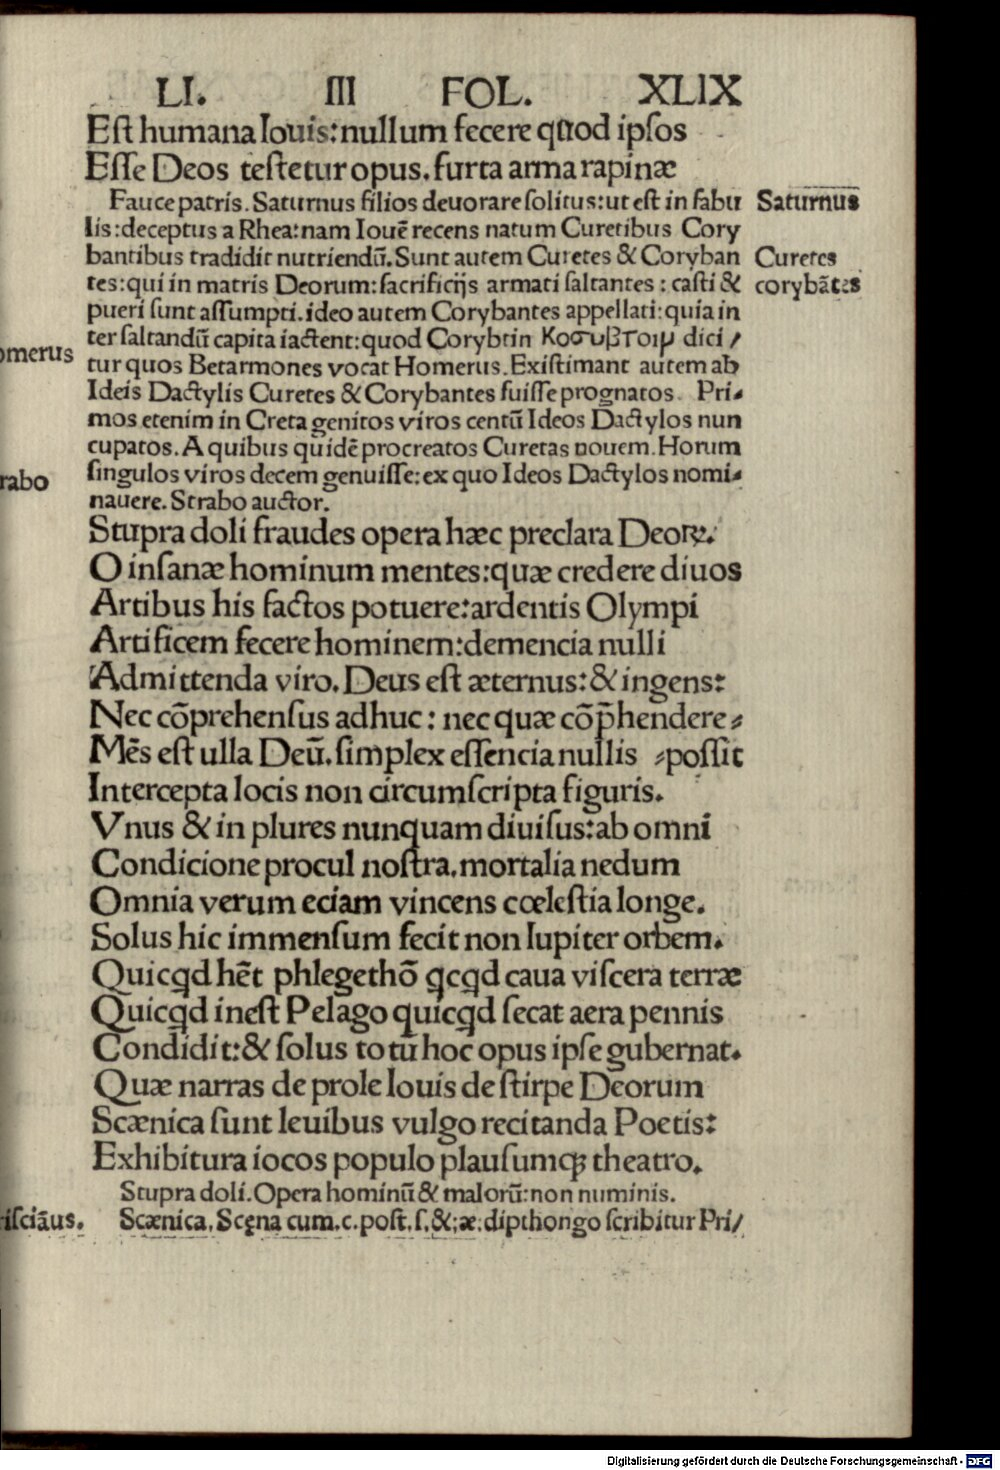 LI. III FOL. XLIX
Eſt humana Iouis: nullum fecere quod ipſos
Eſſe Deos teſtetur opus. furta arma rapinæ
Fauce patris. Saturnus filios deuorare ſolitus: ut eſt in fabu
Saturnus
lis: deceptus a Rhea: nam Iouē recens natum Curetibus Cory
bantibus tradidit nutriendū. Sunt autem Curetes & Coryban
Curetes
tes: qui in matris Deorum: ſacrificijs armati ſaltantes: caſti &
corybātes
pueri ſunt aſſumpti. ideo autem Corybantes appellati: quia in
ter ſaltandū capita iactent: quod Corybtin dici /
omerus
tur quos Betarmones vocat Homerus. Exiſtimant autem ab
Ideis Dactylis Curetes & Corybantes fuiſſe prognatos. Pri⸗
mos etenim in Creta genitos viros centū Ideos Dactylos nun
cupatos. A quibus quidē procreatos Curetas nouem. Horum
rabo
ſingulos viros decem genuiſſe: ex quo Ideos Dactylos nomi⸗
nauere. Strabo auctor.
Stupra doli fraudes opera hæc preclara Deoꝝ.
O inſanæ hominum mentes: quæ credere diuos
Artibus his factos potuere: ardentis Olympi
Artificem fecere hominem: demencia nulli
Admittenda viro. Deus eſt æternus: & ingens:
Nec cōprehenſus adhuc: nec quæ cōp̄hendere⸗
Mēs eſt ulla Deū. ſimplex eſſencia nullis ⸗poſſit
Intercepta locis non circumſcripta figuris.
Vnus & in plures nunquam diuiſus: ab omni
Condicione procul noſtra. mortalia nedum
Omnia verum eciam vincens cœleſtia longe.
Solus hic immenſum fecit non Iupiter orbem.
Quicꝗd hēt phlegethō ꝗcꝗd caua viſcera terræ
Quicꝗd ineſt Pelago quicꝗd ſecat aera pennis
Condidit: & ſolus totū hoc opus ipſe gubernat.
Quæ narras de prole Iouis de ſtirpe Deorum
Scænica ſunt leuibus vulgo recitanda Poetis:
Exhibitura iocos populo plauſumqꝫ theatro.
Stupra doli. Opera hominū & malorū: non numinis.
iſciāus.
Scænica. Scęna cum. c. poſt. ſ. &; æ. dipthongo ſcribitur Pri/
Digitalisierung gefördert durch die Deutsche Forschungsgemeinschaft - DFG